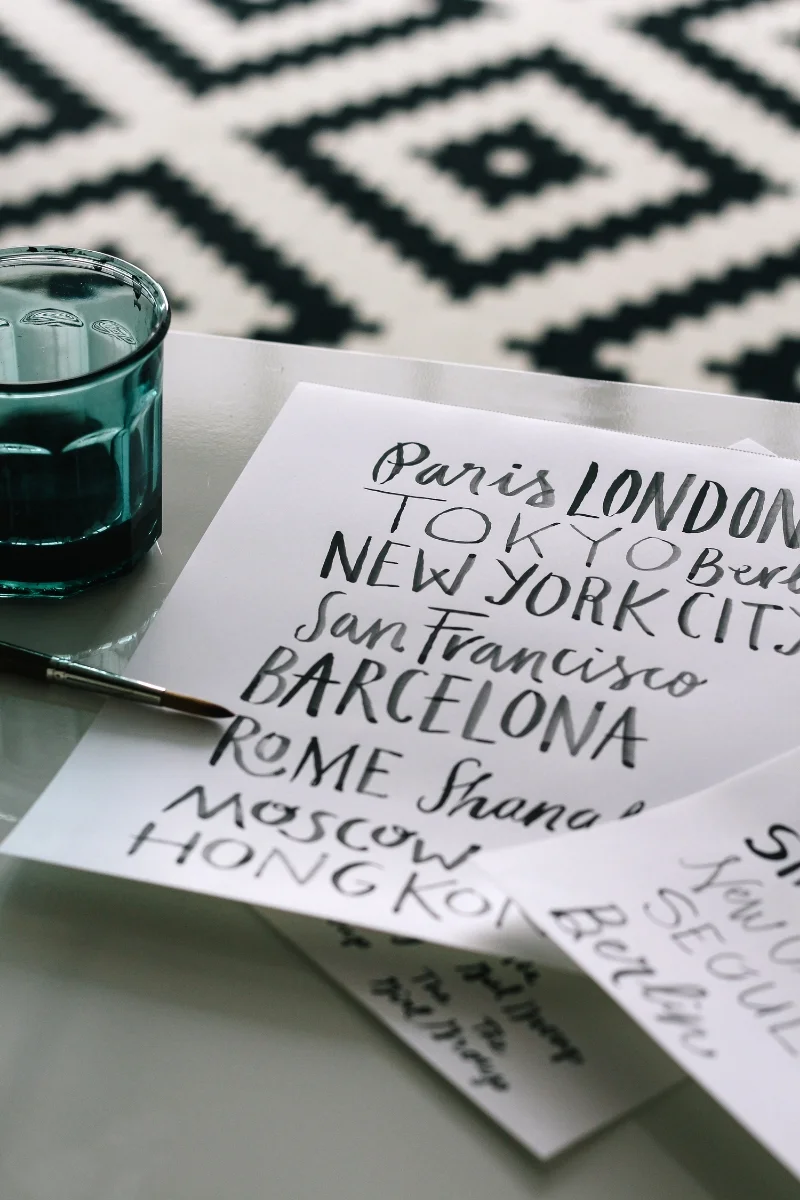 Paris LONDON
TOKYO Berl
NEW YORK CITY
San Francisco
BARCELONA
ROME Shang
Moscow
HONG KON
New
SEOUL
Berlin
The
The